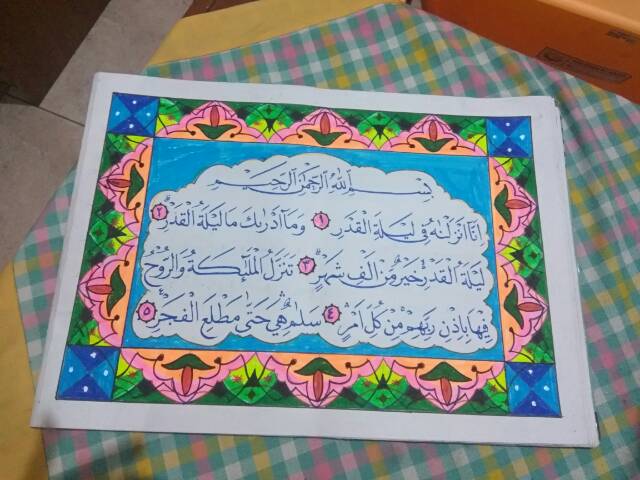 بِسْمِ اللهِ الرَّحْمٰنِ الرَّحِيْمِ
اِنَّا اَنْزَلْنٰهُ فِيْ لَيْلَةِ الْقَدْرِ ۝١ وَمَآ اَدْرٰىكَ مَا لَيْلَةُ الْقَدْرِۗ ۝٢
لَيْلَةُ الْقَدْرِ خَيْرٌ مِّنْ اَلْفِ شَهْرٍۗ ۝٣ تَنَزَّلُ الْمَلٰۤىِٕكَةُ وَالرُّوْحُ
فِيْهَا بِاِذْنِ رَبِّهِمْ مِّنْ كُلِّ اَمْرٍۛ ۝٤ سَلٰمٌ هِيَ حَتّٰى مَطْلَعِ الْفَجْرِ ۝٥